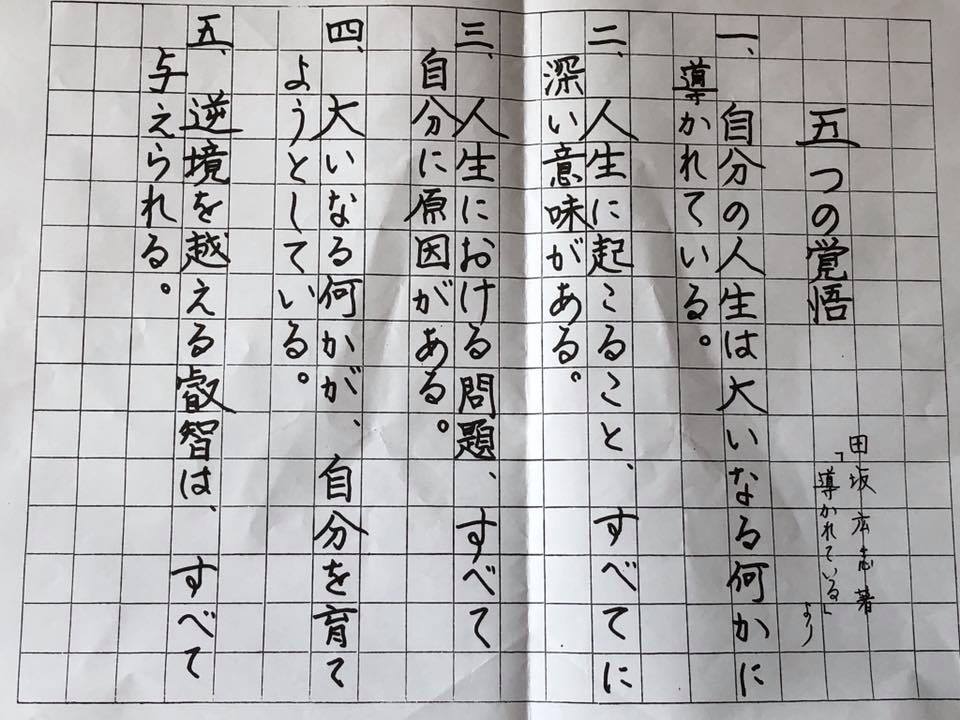 五つの覚悟
田坂広志著
「導かれている」
より
一、自分の人生は大いなる何かに
導かれている。
二、人生に起こること、すべてに
深い意味がある。
三、人生における問題、すべて
自分に原因がある。
四、大いなる何かが、自分を育て
ようとしている。
五、逆境を越える叡智は、すべて
与えられる。